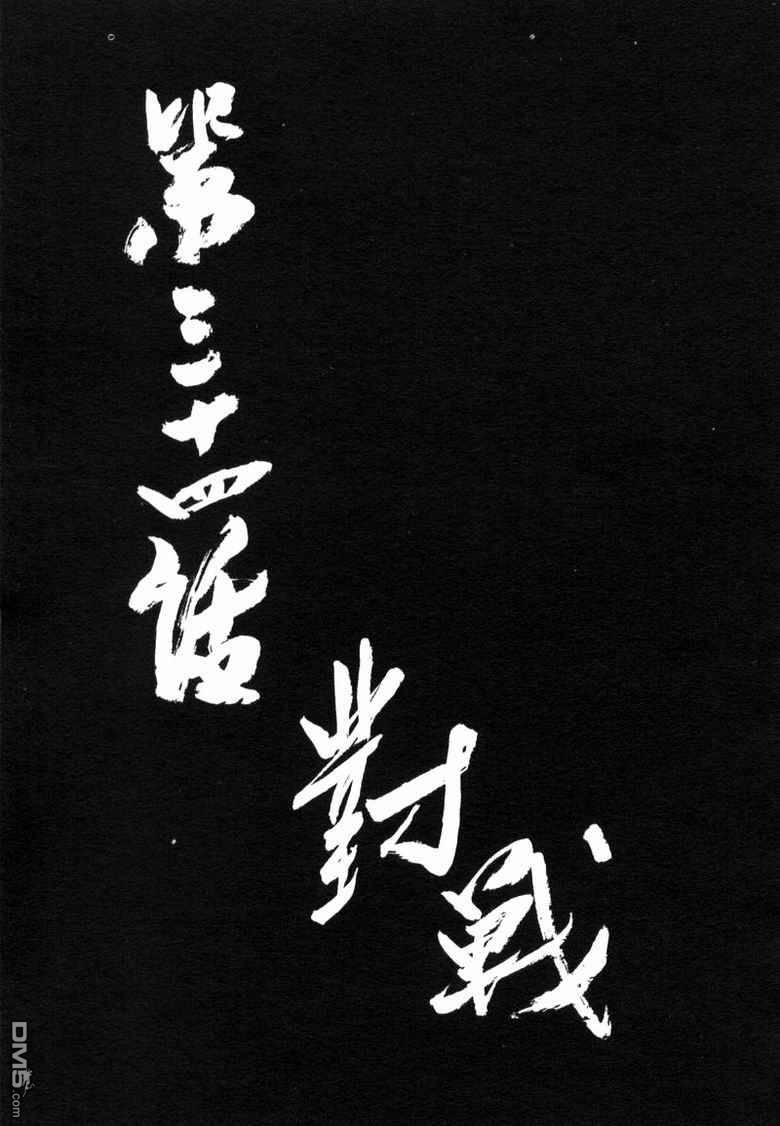 第三十四話
對戰
DM5.com